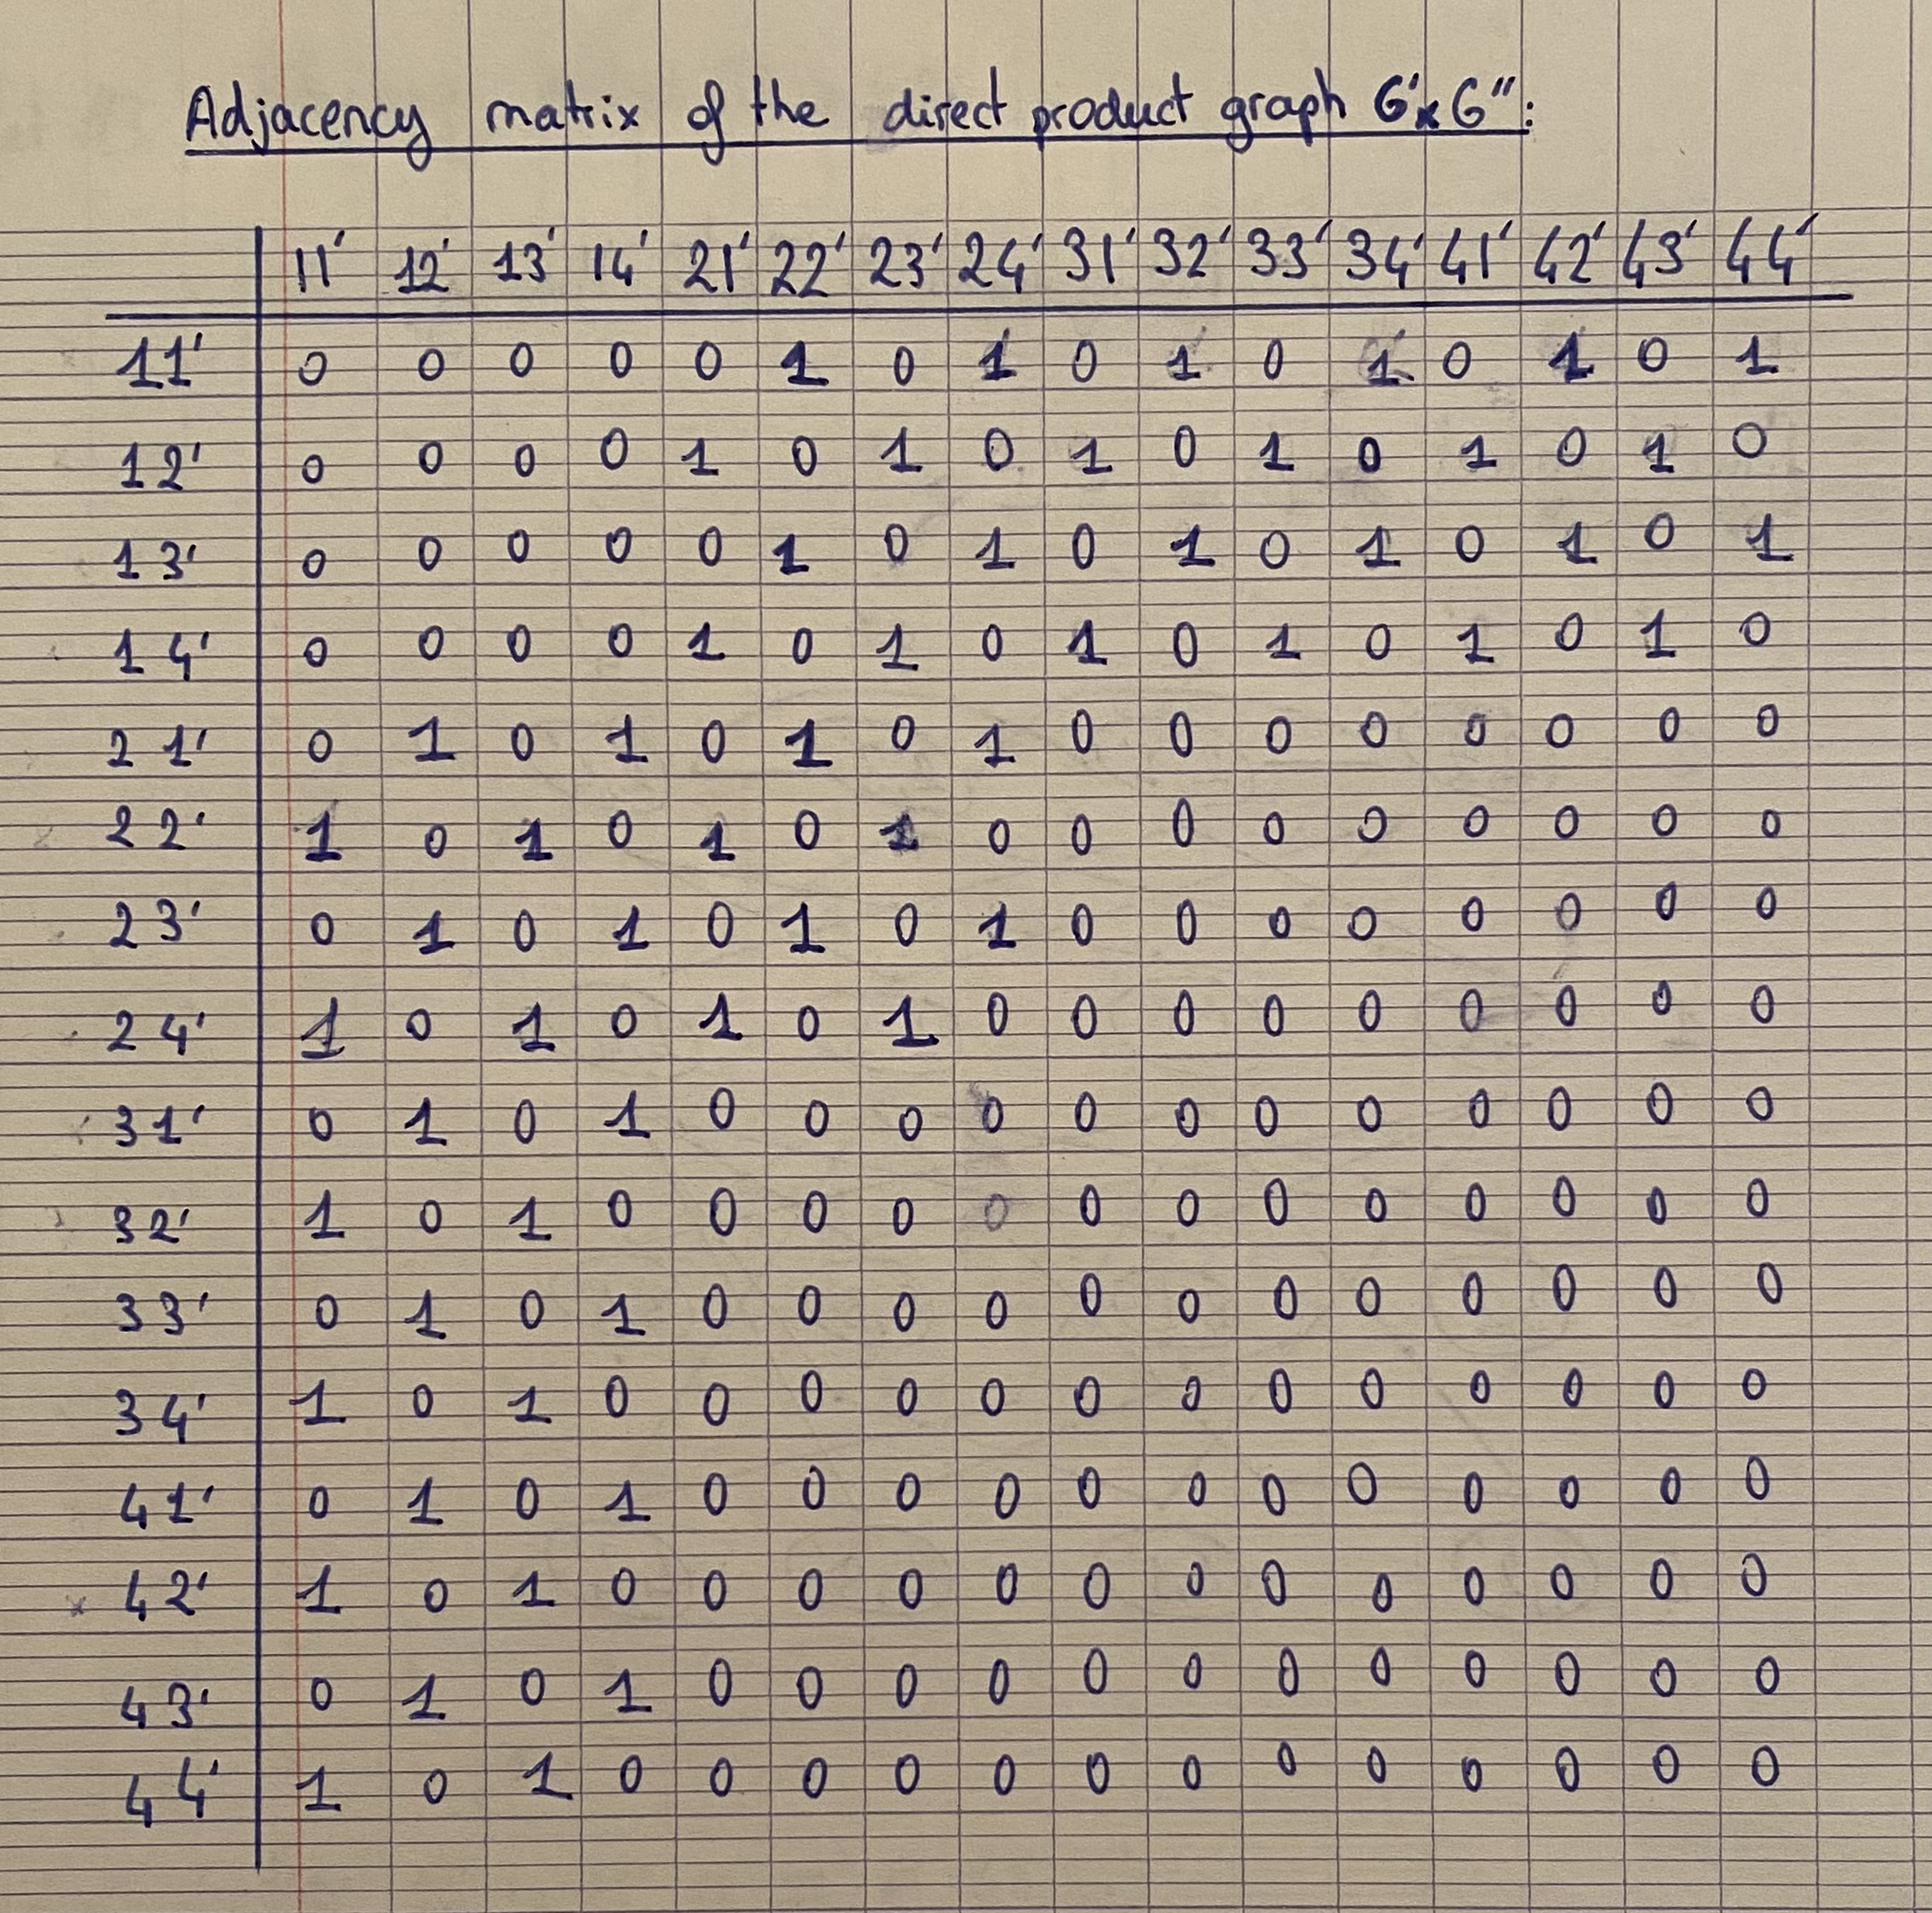 Adjacency matrix of the direct product graph G'×G'':
11' 12' 13' 14' 21' 22' 23' 24' 31' 32' 33' 34' 41' 42' 43' 44'
11' 0 0 0 0 0 1 0 1 0 1 0 1 0 1 0 1
12' 0 0 0 0 1 0 1 0 1 0 1 0 1 0 1 0
13' 0 0 0 0 0 1 0 1 0 1 0 1 0 1 0 1
14' 0 0 0 0 1 0 1 0 1 0 1 0 1 0 1 0
21' 0 1 0 1 0 1 0 1 0 0 0 0 0 0 0 0
22' 1 0 1 0 1 0 1 0 0 0 0 0 0 0 0 0
23' 0 1 0 1 0 1 0 1 0 0 0 0 0 0 0 0
24' 1 0 1 0 1 0 1 0 0 0 0 0 0 0 0 0
31' 0 1 0 1 0 0 0 0 0 0 0 0 0 0 0 0
32' 1 0 1 0 0 0 0 0 0 0 0 0 0 0 0 0
33' 0 1 0 1 0 0 0 0 0 0 0 0 0 0 0 0
34' 1 0 1 0 0 0 0 0 0 0 0 0 0 0 0 0
41' 0 1 0 1 0 0 0 0 0 0 0 0 0 0 0 0
42' 1 0 1 0 0 0 0 0 0 0 0 0 0 0 0 0
43' 0 1 0 1 0 0 0 0 0 0 0 0 0 0 0 0
44' 1 0 1 0 0 0 0 0 0 0 0 0 0 0 0 0